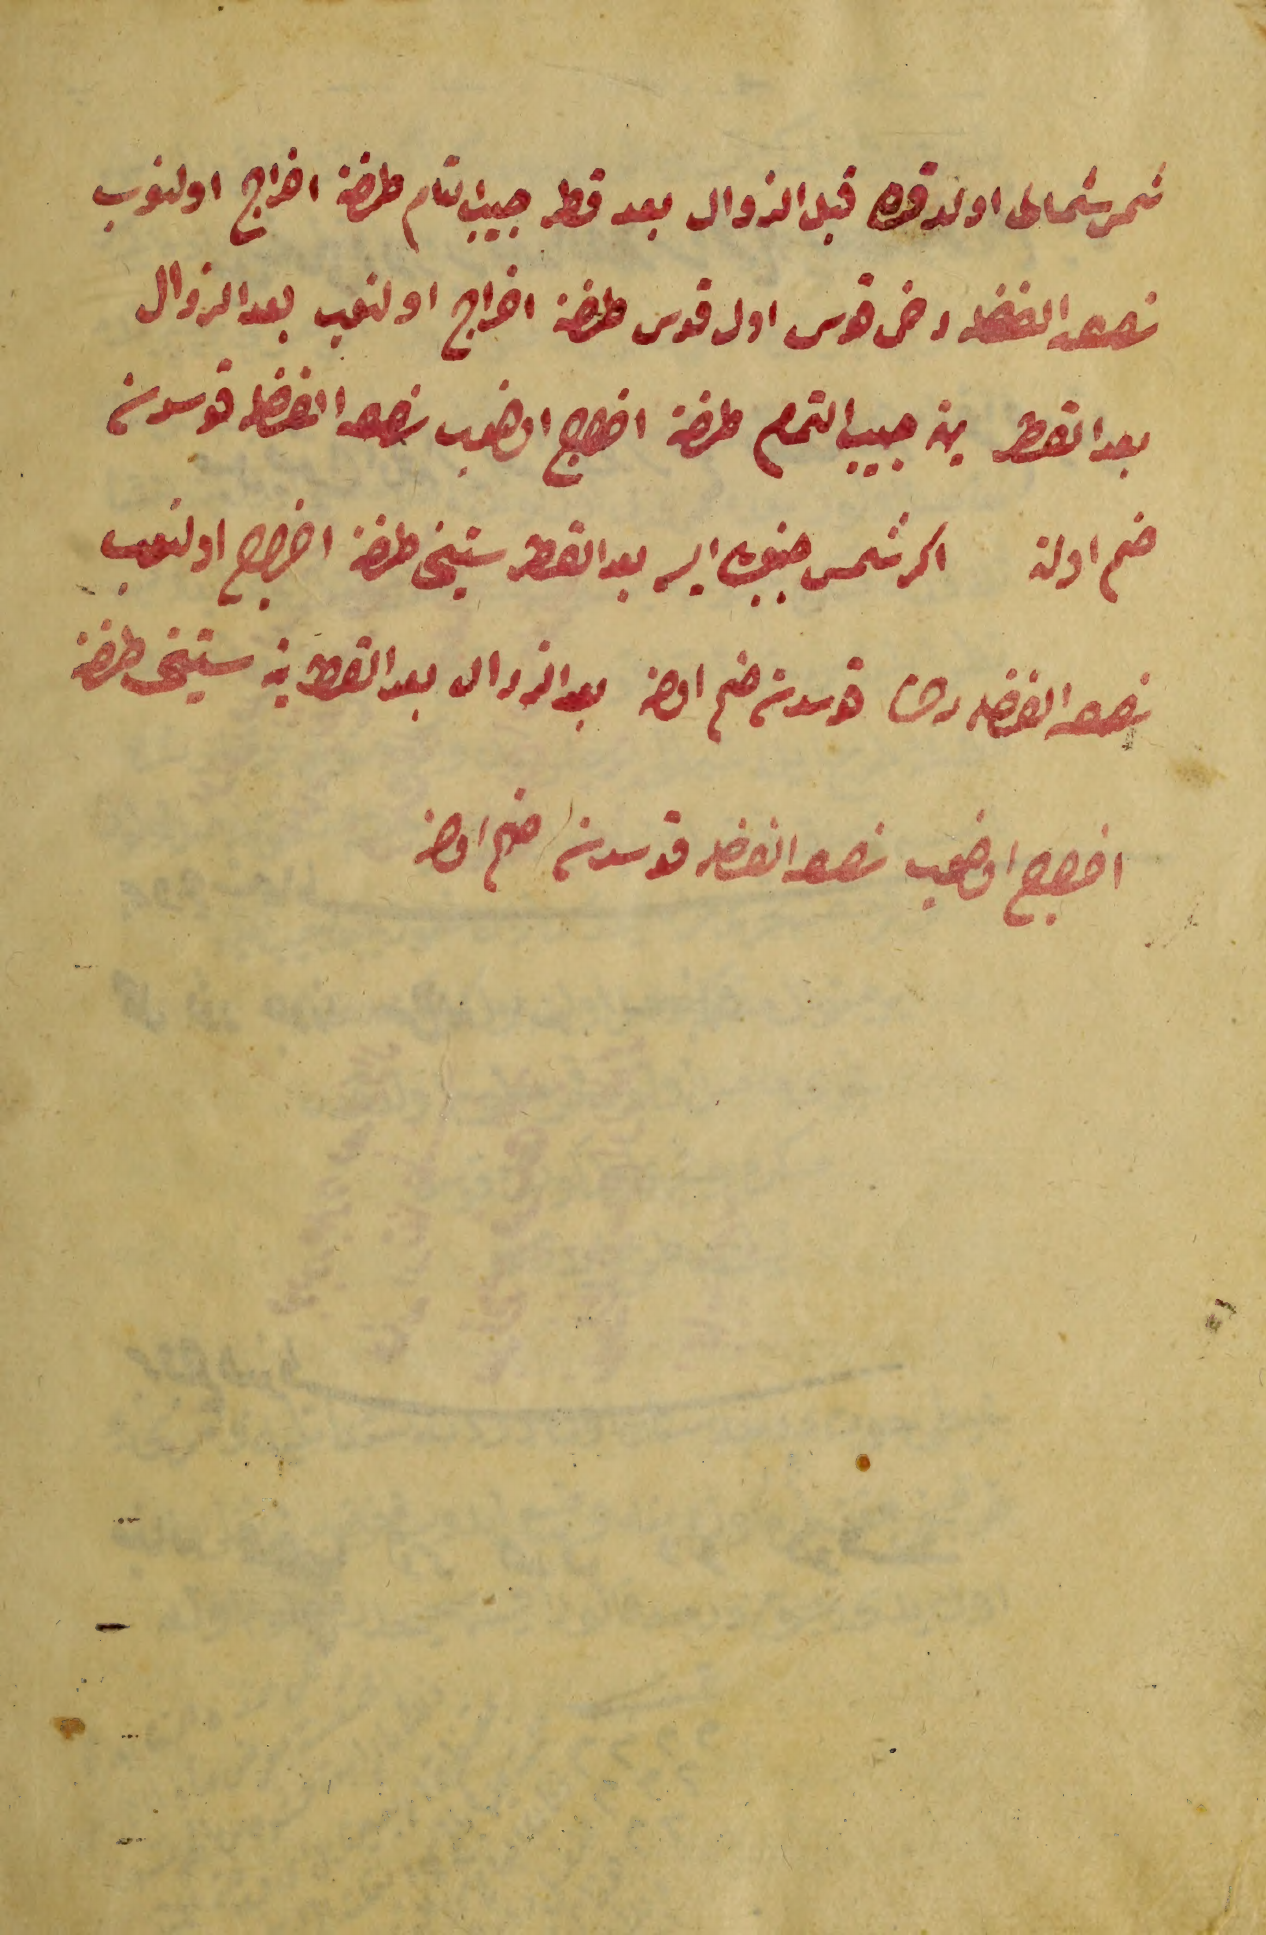 شمس شمالى اولدقده قبل الزوال بعد قطر جيب التمام طرفنه اخراج اولنوب
نصف الفضله دخى قوس اول قوس طرفنه اخراج اولنوب بعد الزوال
بعد القطر ينه جيب التمام طرفنه اخراج اولنوب نصف الفضله قوسدن
ضم اولنه اكر شمس جنوبى ايسه بعد القطر ستينى طرفنه اخراج اولنوب
نصف الفضله قوسدن ضم اولنه بعد الزوال بعد القطر ينه ستينى طرفنه
اخراج اولنوب نصف الفضله قوسدن ضم اولنه